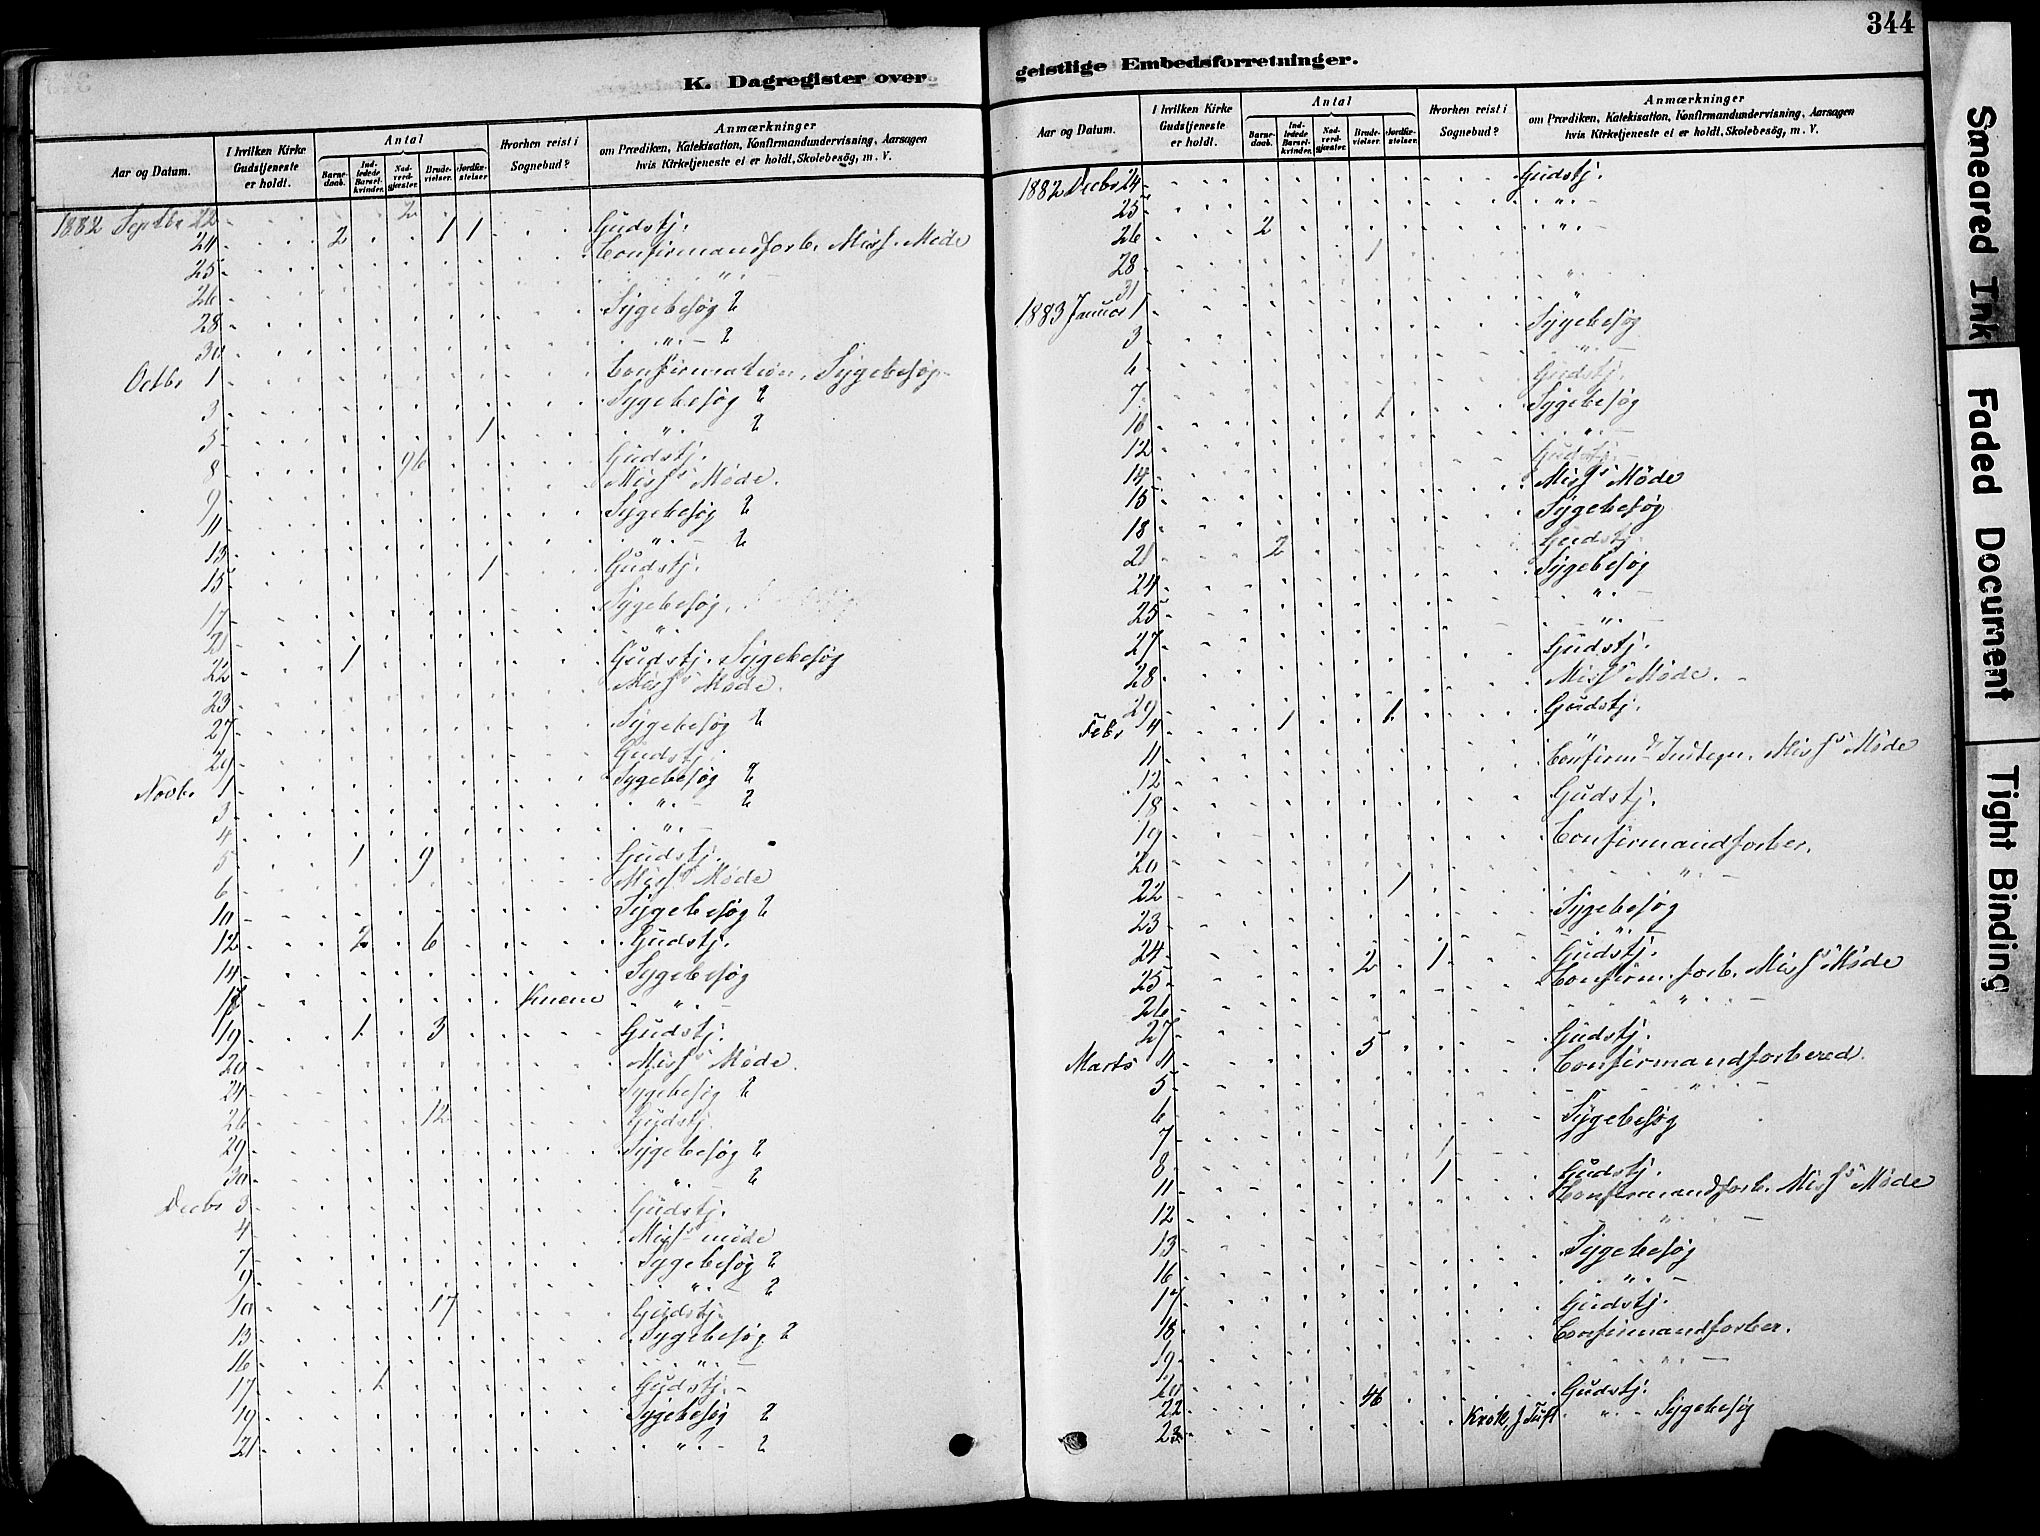 K. Dagregister over
Aar og Datum.
I hvilken Kirke Gudstjeneste er holdt.
Antal
Barnedaab.
Indledede Barselkvinder.
Nadverdgjæster.
Brudevielser.
Jordfæstelser.
Hvorhen reist i Sognebud?
Anmærkninger
om Prædiken, Katekisation, Konfirmandundervisning, Aarsagen
hvis Kirketjeneste ei er holdt, Skolebesøg, m. V.
1882 Septbr 22 2
24 2 1 1 Gudstj.
25 Confirmandforb. Miss. Møde
26 "
28 Sygebesøg 2
30 " 2
Octbr 1 Confirmation, Sygebesøg
3 Sygebesøg 2
5 1 " 2
8 96 Gudstj.
9 Miss. Møde.
11 Sygebesøg 2
13 " 2
15 1 Gudstj.
17 Sygebesøg,
21 "
22 1 Gudstj. Sygebesøg
23 Miss. Møde.
27 Sygebesøg 2
29 Gudstj.
Novbr 1 Sygebesøg 2
3 " 2
4 "
5 1 9 Gudstj.
6 Miss. Møde
10 Sygebesøg 2
12 2 6 Gudstj.
14 Sygebesøg
18 Knem "
19 1 3 Gudstj.
20 Miss. Møde.
24 Sygebesøg 2
26 12 Gudstj.
29 Sygebesøg 2
30 " 2
Decbr 3 Gudstj.
4 Miss. møde
7 Sygebesøg 2
9 " 2
10 17 Gudstj.
13 Sygebesøg 2
16 "
17 1 Gudstj.
19 Sygebesøg 2
21 " 2
344
geistlige Embedsforretninger.
Aar og Datum.
I hvilken Kirke Gudstjeneste er holdt.
Antal
Barnedaab.
Indledede Barselkvinder.
Nadverdgjæster.
Brudevielser.
Jordfæstelser.
Hvorhen reist i Sognebud?
Anmærkninger
om Prædiken, Katekisation, Konfirmandundervisning, Aarsagen
hvis Kirketjeneste ei er holdt, Skolebesøg, m. V.
1882 Decbr 24 Gudstj.
25 "
26 2 "
28 1
31 "
1883 Januar 1 "
3 Sygebesøg
6 "
7 Gudstj.
10 1 Sygebesøg
12 "
14 Gudstj.
15 Miss. Møde
18 Sygebesøg
21 2 Gudstj.
24 Sygebesøg
25 "
27 "
28 Gudstj.
29 Miss. Møde.
Febr 4 1 1 Gudstj.
11
12 Miss. Møde
18 Gudstj.
19 Confirmandforber.
20 "
22 1
23 Sygebesøg
24 "
25 2 1 Gudstj.
26 Confirm. forb. Miss. Møde
27 "
Marts 4 5 Gudstj.
5 Confirmandforbered.
6 "
7 Sygebesøg
8 1
11 1 Gudstj.
12 Confirmandforb. Miss. Møde
13 "
16 Sygebesøg
17 "
18 Gudstj.
19 Confirmandforber.
20 "
22 46 Gudstj.
23 " Sygebesøg
Smeared Ink
Faded Document
Tight Binding